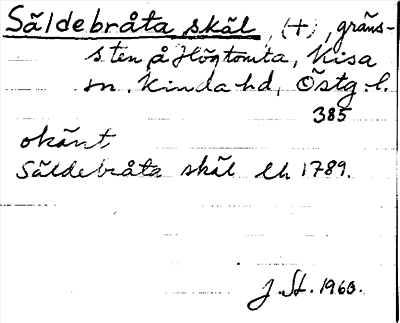 Såldebråta skäl, (+), gräns-
sten å Högtomta, Kisa
sn. Kinda hd, Östg. l.
385
okänt
Såldebråta skäl Lh 1789.
J. St. 1960.